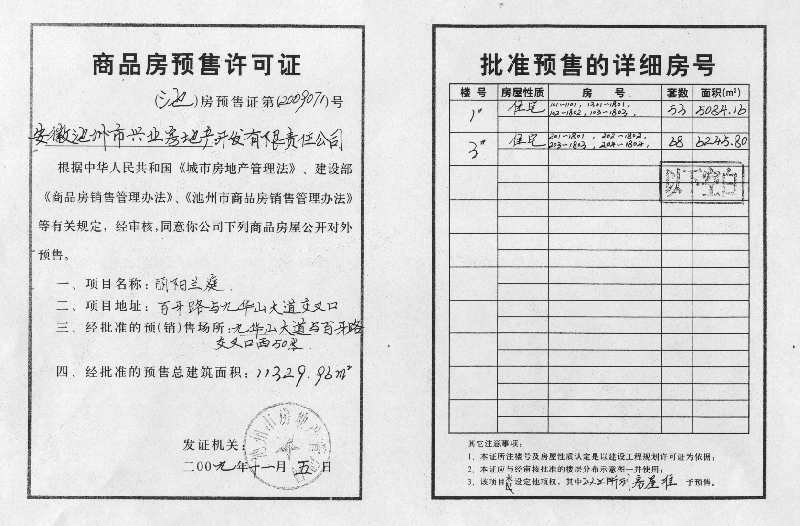 商品房预售许可证
(池)房预售证第(2009071)号
安徽池州市兴业房地产开发有限责任公司
根据中华人民共和国《城市房地产管理法》、建设部
《商品房销售管理办法》、《池州市商品房销售管理办法》
等有关规定，经审核，同意你公司下列商品房屋公开对外
预售。
一、项目名称：阳兰庭
二、项目地址：百牙路与九华山大道交叉口
三、经批准的预(销)售场所：九华山大道与百牙路
交叉口西50米
四、经批准的预售总建筑面积：11329.96m²
发证机关：
二00九年十一月五日
批准预售的详细房号
楼号 房屋性质 房号 套数 面积(m²)
1# 住宅 101~1101, 1301~1801, 53 5084.16
102~1802, 103~1803,
3# 住宅 201~1801, 202~1802, 68 6245.80
203~1803, 204~1804,
以下空白
其它注意事项：
1、本证所注楼号及房屋性质认定是以建设工程规划许可证为依据；
2、本证应与经审核批准的楼层分布示意图一并使用；
3、该项目设定他项权，其中房屋准予预售。